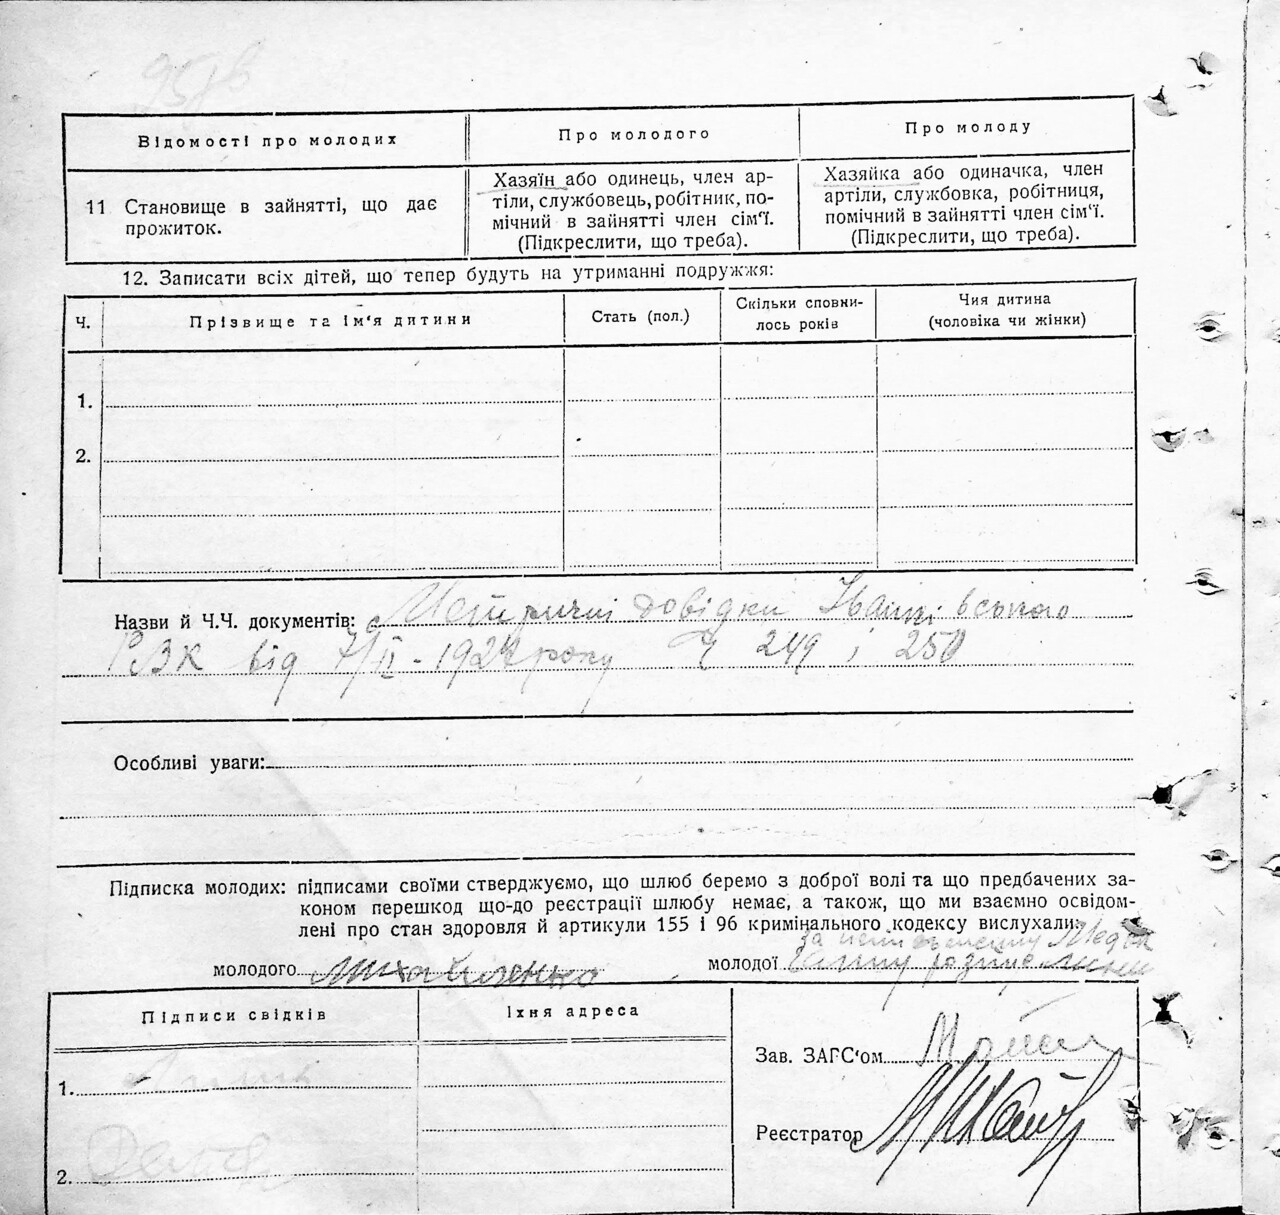 Відомості про молодих
Про молодого
Про молоду
11 Становище в зайнятті, що дає
прожиток.
Хазяїн або одинець, член ар-
тіли, службовець, робітник, по-
мічний в зайнятті член сім'ї.
(Підкреслити, що треба).
Хазяйка або одиначка, член
артіли, службовка, робітниця,
помічний в зайнятті член сім'ї.
(Підкреслити, що треба).
12. Записати всіх дітей, що тепер будуть на утриманні подружжя:
Ч.
Прізвище та ім'я дитини
Стать (пол.)
Скільки сповни-
лось років
Чия дитина
(чоловіка чи жінки)
1.
2.
Назви й Ч.Ч. документів: Метричні довідки Іванківського
РВК від 7/II - 1927 року Ч 249 і 250
Особливі уваги:
Підписка молодих: підписами своїми стверджуємо, що шлюб беремо з доброї волі та що предбачених за-
коном перешкод що-до реєстрації шлюбу немає, а також, що ми взаємно освідом-
лені про стан здоровля й артикули 155 і 96 кримінального кодексу вислухали:
молодого
молодої
Підписи свідків
Їхня адреса
1.
2.
Зав. ЗАГС'ом
Реєстратор